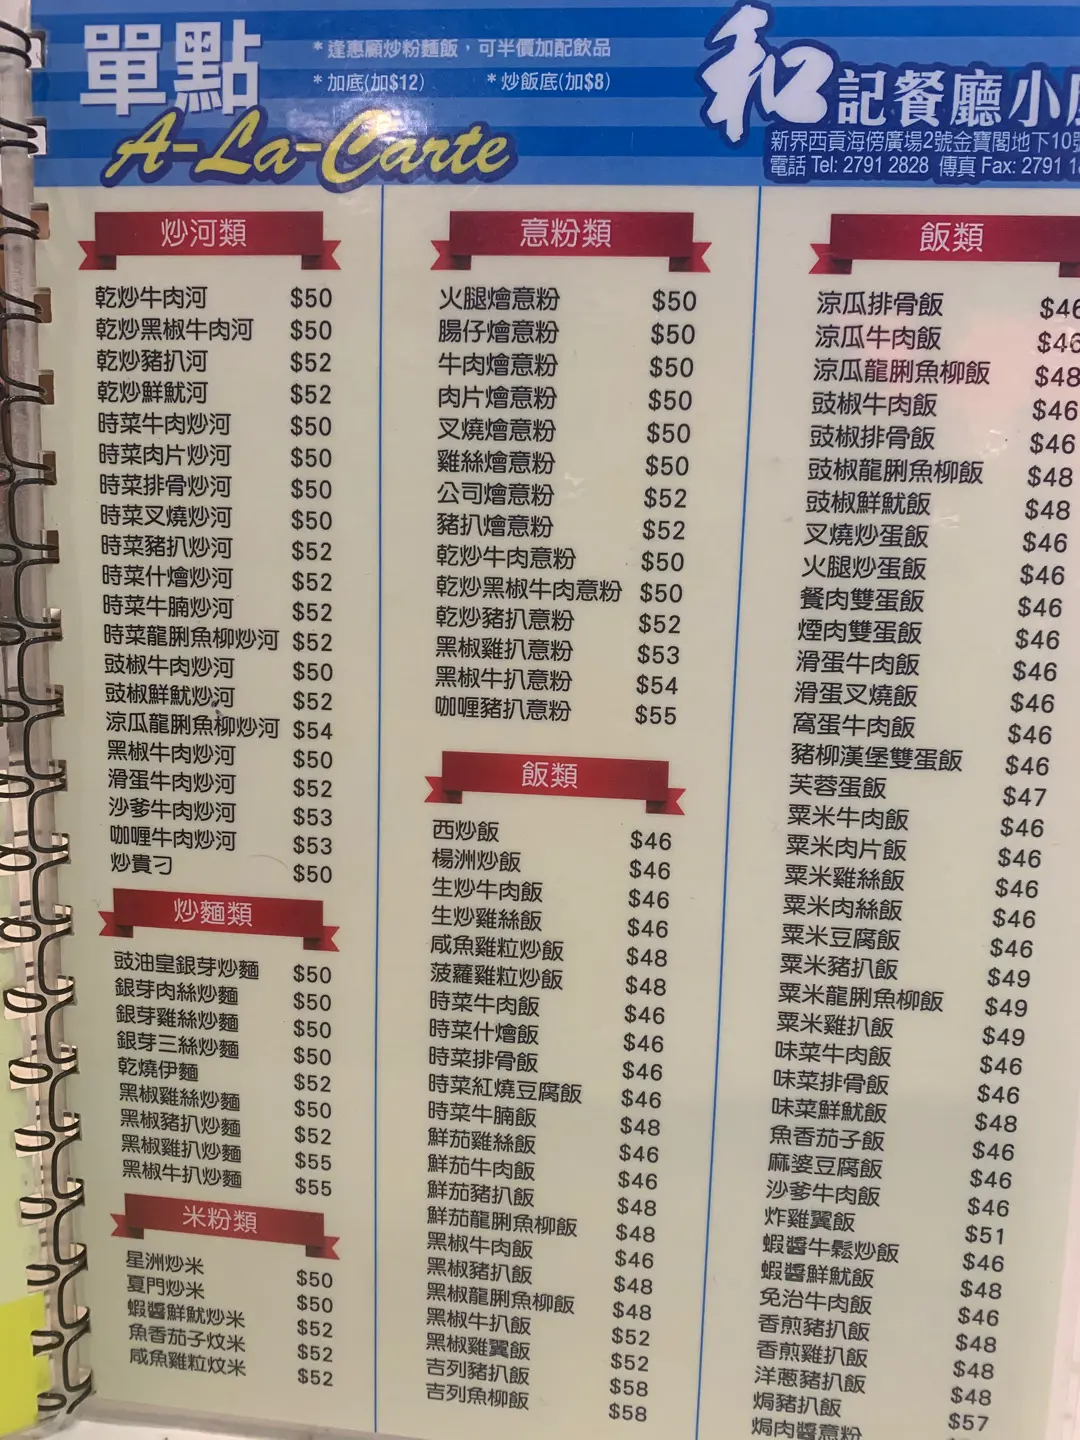 單點
A-La-Carte
*逢惠顧炒粉麵飯，可半價加配飲品
*加底(加$12) *炒飯底(加$8)
和記餐廳小
新界西貢海傍廣場2號金寶閣地下10號
電話 Tel: 2791 2828 傳真 Fax: 2791 1
炒河類
乾炒牛肉河 $50
乾炒黑椒牛肉河 $50
乾炒豬扒河 $52
乾炒鮮魷河 $52
時菜牛肉炒河 $50
時菜肉片炒河 $50
時菜排骨炒河 $50
時菜叉燒炒河 $50
時菜豬扒炒河 $52
時菜什燴炒河 $52
時菜牛腩炒河 $52
時菜龍脷魚柳炒河 $52
豉椒牛肉炒河 $50
豉椒鮮魷炒河 $52
涼瓜龍脷魚柳炒河 $54
黑椒牛肉炒河 $50
滑蛋牛肉炒河 $52
沙爹牛肉炒河 $53
咖喱牛肉炒河 $53
炒貴刁 $50
炒麵類
豉油皇銀芽炒麵 $50
銀芽肉絲炒麵 $50
銀芽雞絲炒麵 $50
銀芽三絲炒麵 $50
乾燒伊麵 $52
黑椒雞絲炒麵 $50
黑椒豬扒炒麵 $52
黑椒雞扒炒麵 $55
黑椒牛扒炒麵 $55
米粉類
星洲炒米 $50
夏門炒米 $50
蝦醬鮮魷炒米 $52
魚香茄子炆米 $52
咸魚雞粒炆米 $52
意粉類
火腿燴意粉 $50
腸仔燴意粉 $50
牛肉燴意粉 $50
肉片燴意粉 $50
叉燒燴意粉 $50
雞絲燴意粉 $50
公司燴意粉 $52
豬扒燴意粉 $52
乾炒牛肉意粉 $50
乾炒黑椒牛肉意粉 $50
乾炒豬扒意粉 $52
黑椒雞扒意粉 $53
黑椒牛扒意粉 $54
咖喱豬扒意粉 $55
飯類
西炒飯 $46
楊洲炒飯 $46
生炒牛肉飯 $46
生炒雞絲飯 $46
咸魚雞粒炒飯 $48
菠蘿雞粒炒飯 $48
時菜牛肉飯 $46
時菜什燴飯 $46
時菜排骨飯 $46
時菜紅燒豆腐飯 $46
時菜牛腩飯 $48
鮮茄雞絲飯 $46
鮮茄牛肉飯 $46
鮮茄豬扒飯 $48
鮮茄龍脷魚柳飯 $48
黑椒牛肉飯 $46
黑椒豬扒飯 $48
黑椒龍脷魚柳飯 $48
黑椒牛扒飯 $52
黑椒雞翼飯 $52
吉列豬扒飯 $58
吉列魚柳飯 $58
飯類
涼瓜排骨飯 $46
涼瓜牛肉飯 $46
涼瓜龍脷魚柳飯 $48
豉椒牛肉飯 $46
豉椒排骨飯 $46
豉椒龍脷魚柳飯 $48
豉椒鮮魷飯 $48
叉燒炒蛋飯 $46
火腿炒蛋飯 $46
餐肉雙蛋飯 $46
煙肉雙蛋飯 $46
滑蛋牛肉飯 $46
滑蛋叉燒飯 $46
窩蛋牛肉飯 $46
豬柳漢堡雙蛋飯 $46
芙蓉蛋飯 $47
粟米牛肉飯 $46
粟米肉片飯 $46
粟米雞絲飯 $46
粟米肉絲飯 $46
粟米豆腐飯 $46
粟米豬扒飯 $49
粟米龍脷魚柳飯 $49
粟米雞扒飯 $49
味菜牛肉飯 $46
味菜排骨飯 $46
味菜鮮魷飯 $48
魚香茄子飯 $46
麻婆豆腐飯 $46
沙爹牛肉飯 $46
炸雞翼飯 $51
蝦醬牛鬆炒飯 $46
蝦醬鮮魷飯 $48
免治牛肉飯 $46
香煎豬扒飯 $48
香煎雞扒飯 $48
洋蔥豬扒飯 $48
焗豬扒飯 $57
焗肉醬意粉